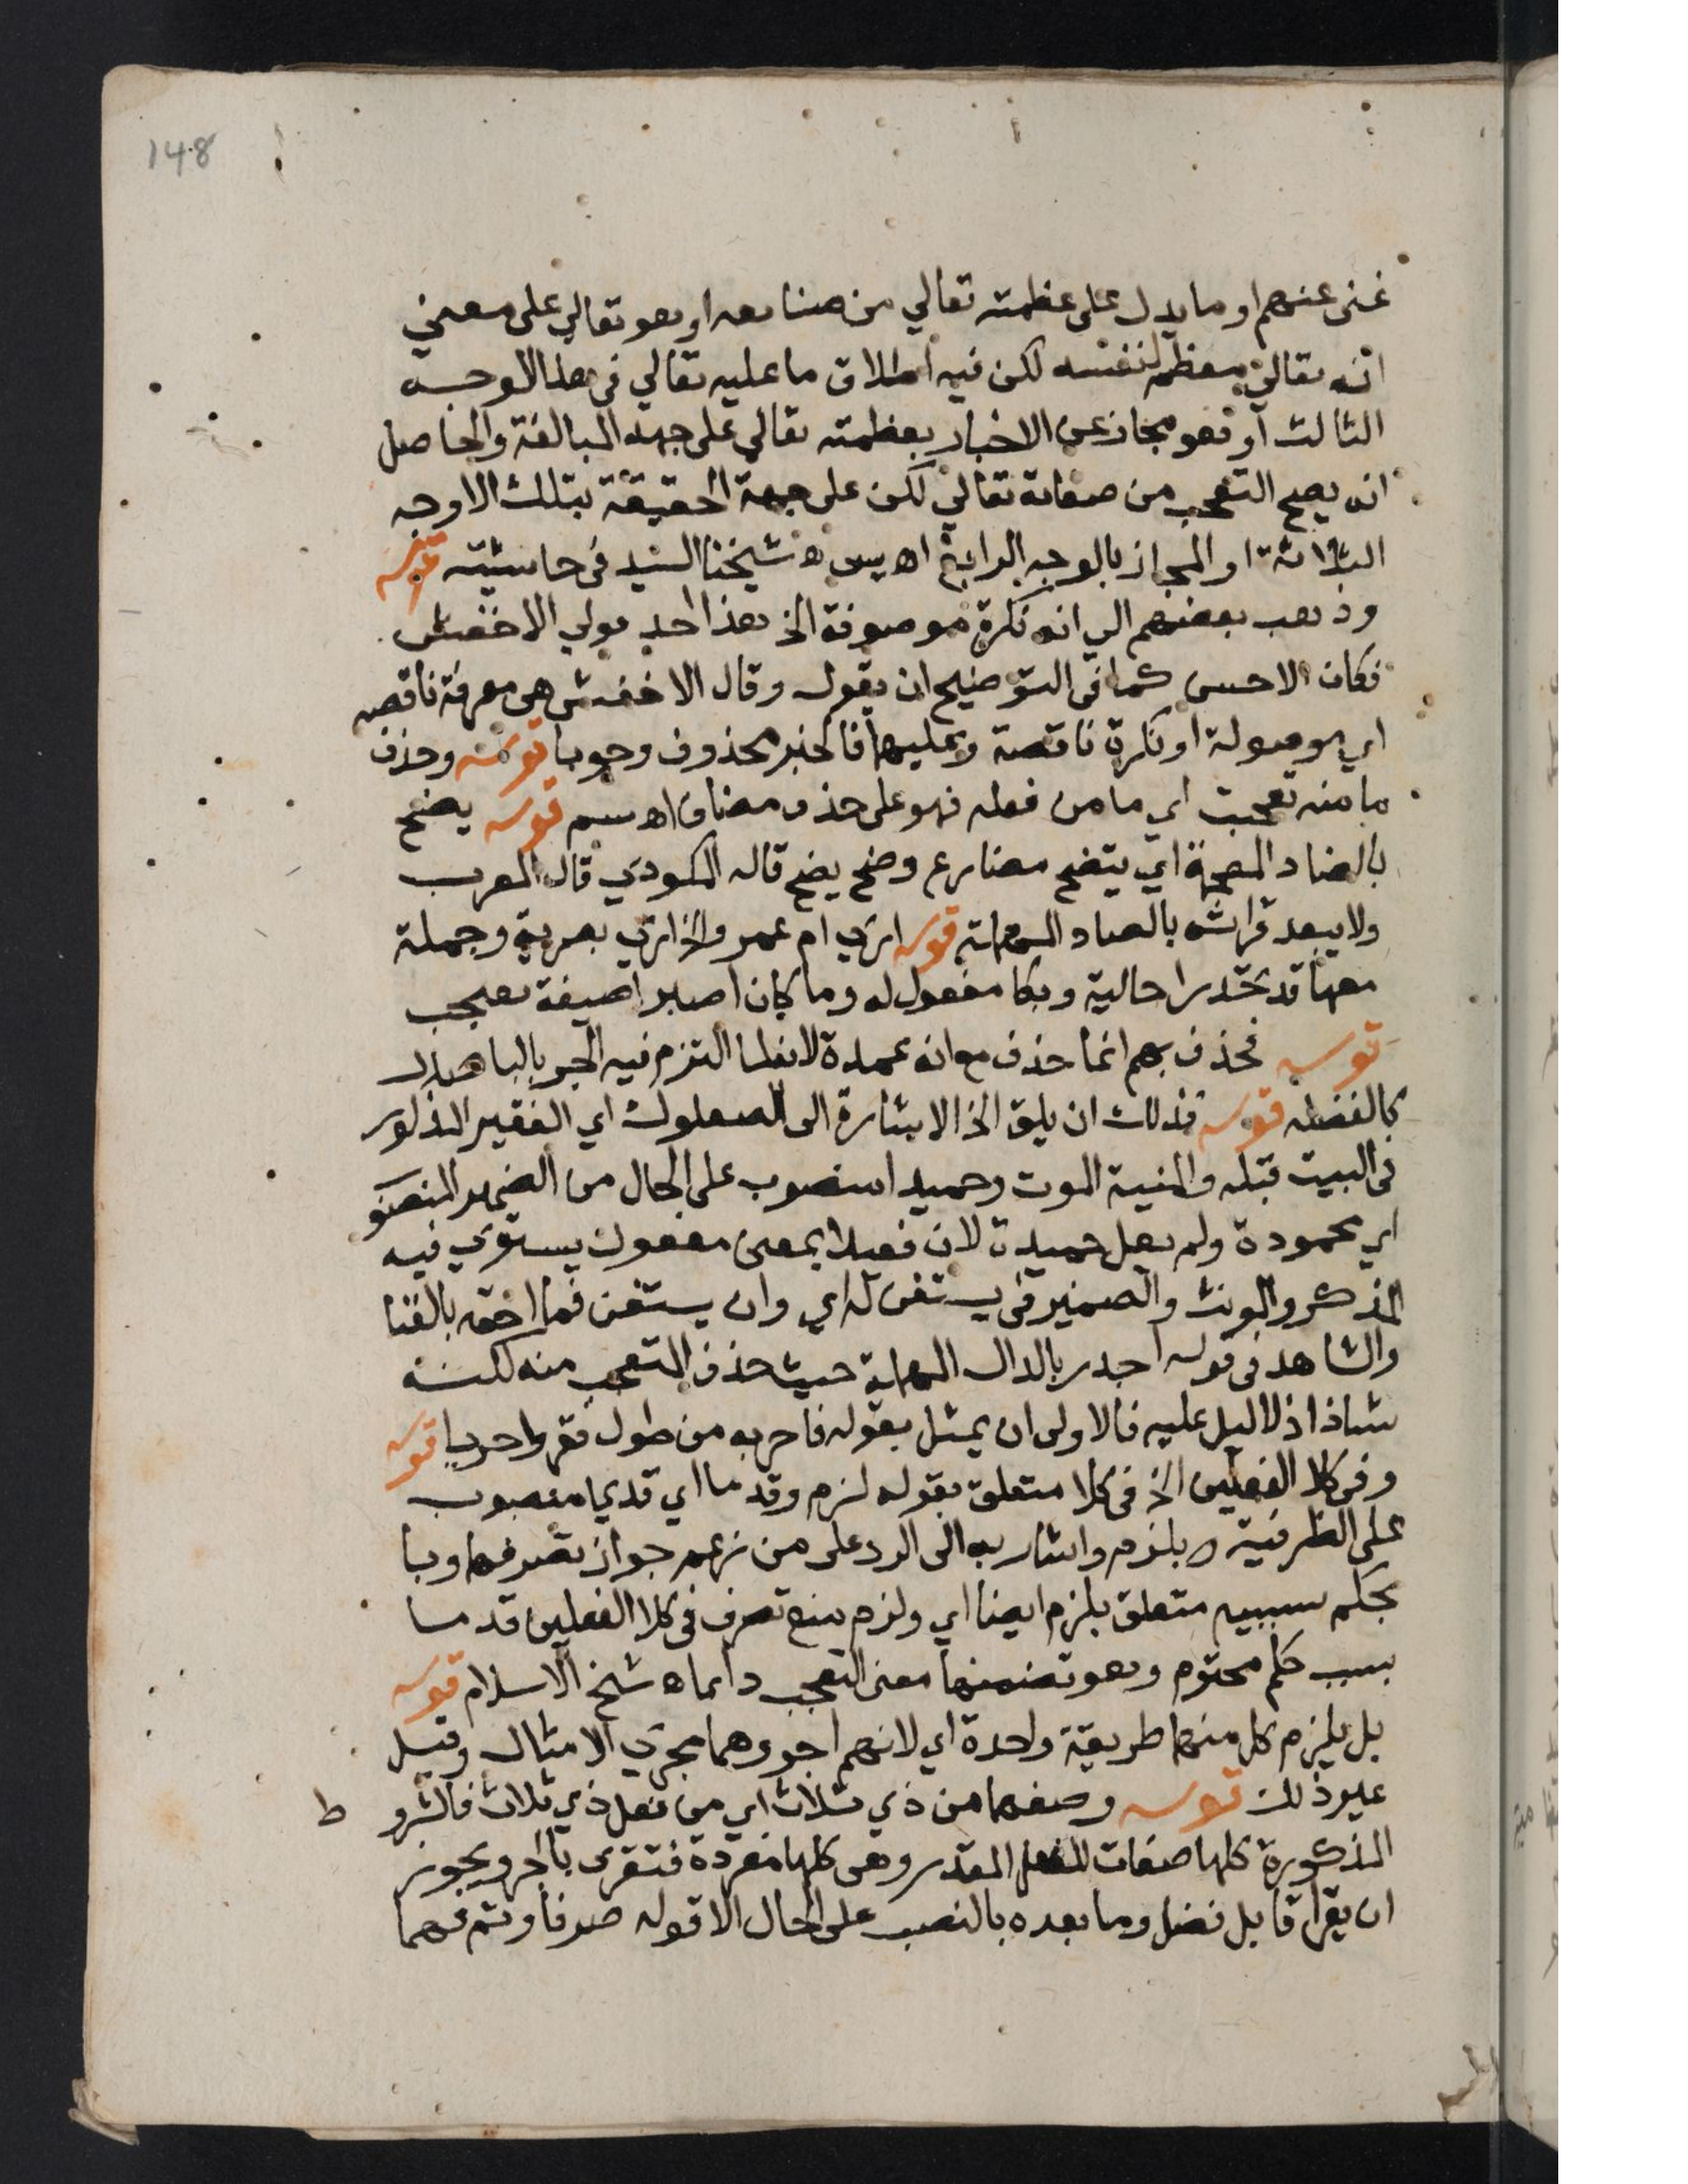 148
غنى عنهم او ما يدل على عظمته تعالي من صنايعه او هو تعالي على معني
انه تعالي معظم لنفسه لكن فيه اطلاق ما عليه تعالي في هذا الوجه
الثالث او هو مجاز عن الاخبار بعظمته تعالي على جهة المبالغة والحاصل
انه يصح التعجب من صفاته تعالي لكن على جهة الحقيقة بتلك الاوجه
الثلاثة او المجاز بالوجه الرابع اه يس ه شيخنا السيد في حاشيته قوله
وذهب بعضهم الي انه نكرة موصوفة الخ هذا احد قولي الاخفش
فكان الاحسن كما في التوضيح ان يقول وقال الاخفش هي معرفة ناقصه
اي موصولة او نكرة ناقصة وعليهما فالخبر محذوف وجوبا قوله وحذف
ما منه تعجبت اي ما من فعله فهو على حذف مضاف اه سم قوله يضح
بالضاد المعجمة اي يتضح مضارع وضح يضح قاله المكودي قال المعرب
ولا يبعد قراته بالصاد المهملة قوله اري ام عمرو الخ اري بصرية وجملة
معها قد تحدرا حالية وبكا مفعول له وما كان اصبرا صيغة تعجب
قوله فحذف بهم انما حذف مع انه عمدة لانه لما التزم فيه الجر بالبا صار
كالفضله قوله فذلك ان يلق الخ الاشارة الى الصعلوك اي الفقير المذكور
في البيت قبله والمنية الموت وحميدا منصوب على الحال من الضمير المنصو
اي محمودة ولم يقل حميدة لان فعيلا بمعنى مفعول يستوي فيه
المذكر والمونث والضمير في يستغن له اي وان يستغن فما احقه بالغنا
والشاهد في قوله اجدر بالدال المهملة حيث حذف المتعجب منه لكنه
شاذ اذ لا دليل عليه فالاولى ان يمثل بقوله فاحربه من طول فقر واحربا قوله
وفي كلا الفعلين الخ في كلا متعلق بقوله لزم وقدما اي قديما منصوب
على الظرفية ه بلزم واشار به الى الرد على من زعم جواز تصرفهما وبا
بحكم سببيه متعلق بلزم ايضا اي ولزم منع تصرف في كلا الفعلين قدما
بسبب حكم محتوم وهو تضمنهما معنى التعجب دايما ه شيخ الاسلام قوله
بل يلزم كل منهما طريقة واحدة اي لانهم اجروهما مجري الامثال وقيل
غير ذلك قوله وصغهما من ذي ثلاث اي من فعل ذي ثلاث فالشرو
ط
المذكورة كلها صفات للفعل المقدر وهي كلها مفردة فتقرى بالجر ويجوز
ان يقرا قابل فضل وما بعده بالنصب على الحال الا قوله صرفا وتم فهما